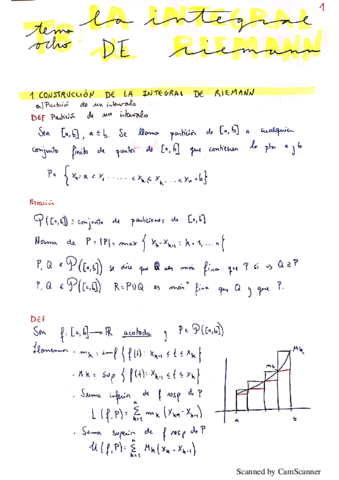 1
tema ocho
LA INTEGRAL
DE riemann
1 CONSTRUCCIÓN DE LA INTEGRAL DE RIEMANN
a) Partición de un intervalo
DEF Partición de un intervalo
Sea [a,b], a ≤ b. Se llama partición de [a,b] a cualquier
conjunto finito de puntos de [a,b] que contienen los ptos a y b
P = { x₀ = a < x₁ ...... < xₖ < xₖ ... < xₙ = b }
Notación
𝒫([a,b]) : conjunto de particiones de [a,b]
Norma de P = |P| = max { xₖ - xₖ₋₁ : k = 1, ... n }
P, Q ∈ 𝒫([a,b]) se dice que Q es más fina que P si ⇒ Q ⊇ P
P, Q ∈ 𝒫([a,b]) R = P ∪ Q es más fina que Q y que P.
DEF
Sea f: [a,b] → ℝ acotada y P ∈ 𝒫([a,b])
Llamemos · mₖ = inf { f(t) : xₖ₋₁ ≤ t ≤ xₖ }
· Mₖ = sup { f(t) : xₖ₋₁ ≤ t ≤ xₖ }
Mₖ
mₖ
a
b
· Suma inferior de f resp de P
L(f,P) = Σ mₖ (xₖ - xₖ₋₁)
· Suma superior de f resp de P
U(f,P) = Σ Mₖ (xₖ - xₖ₋₁)
Scanned by CamScanner